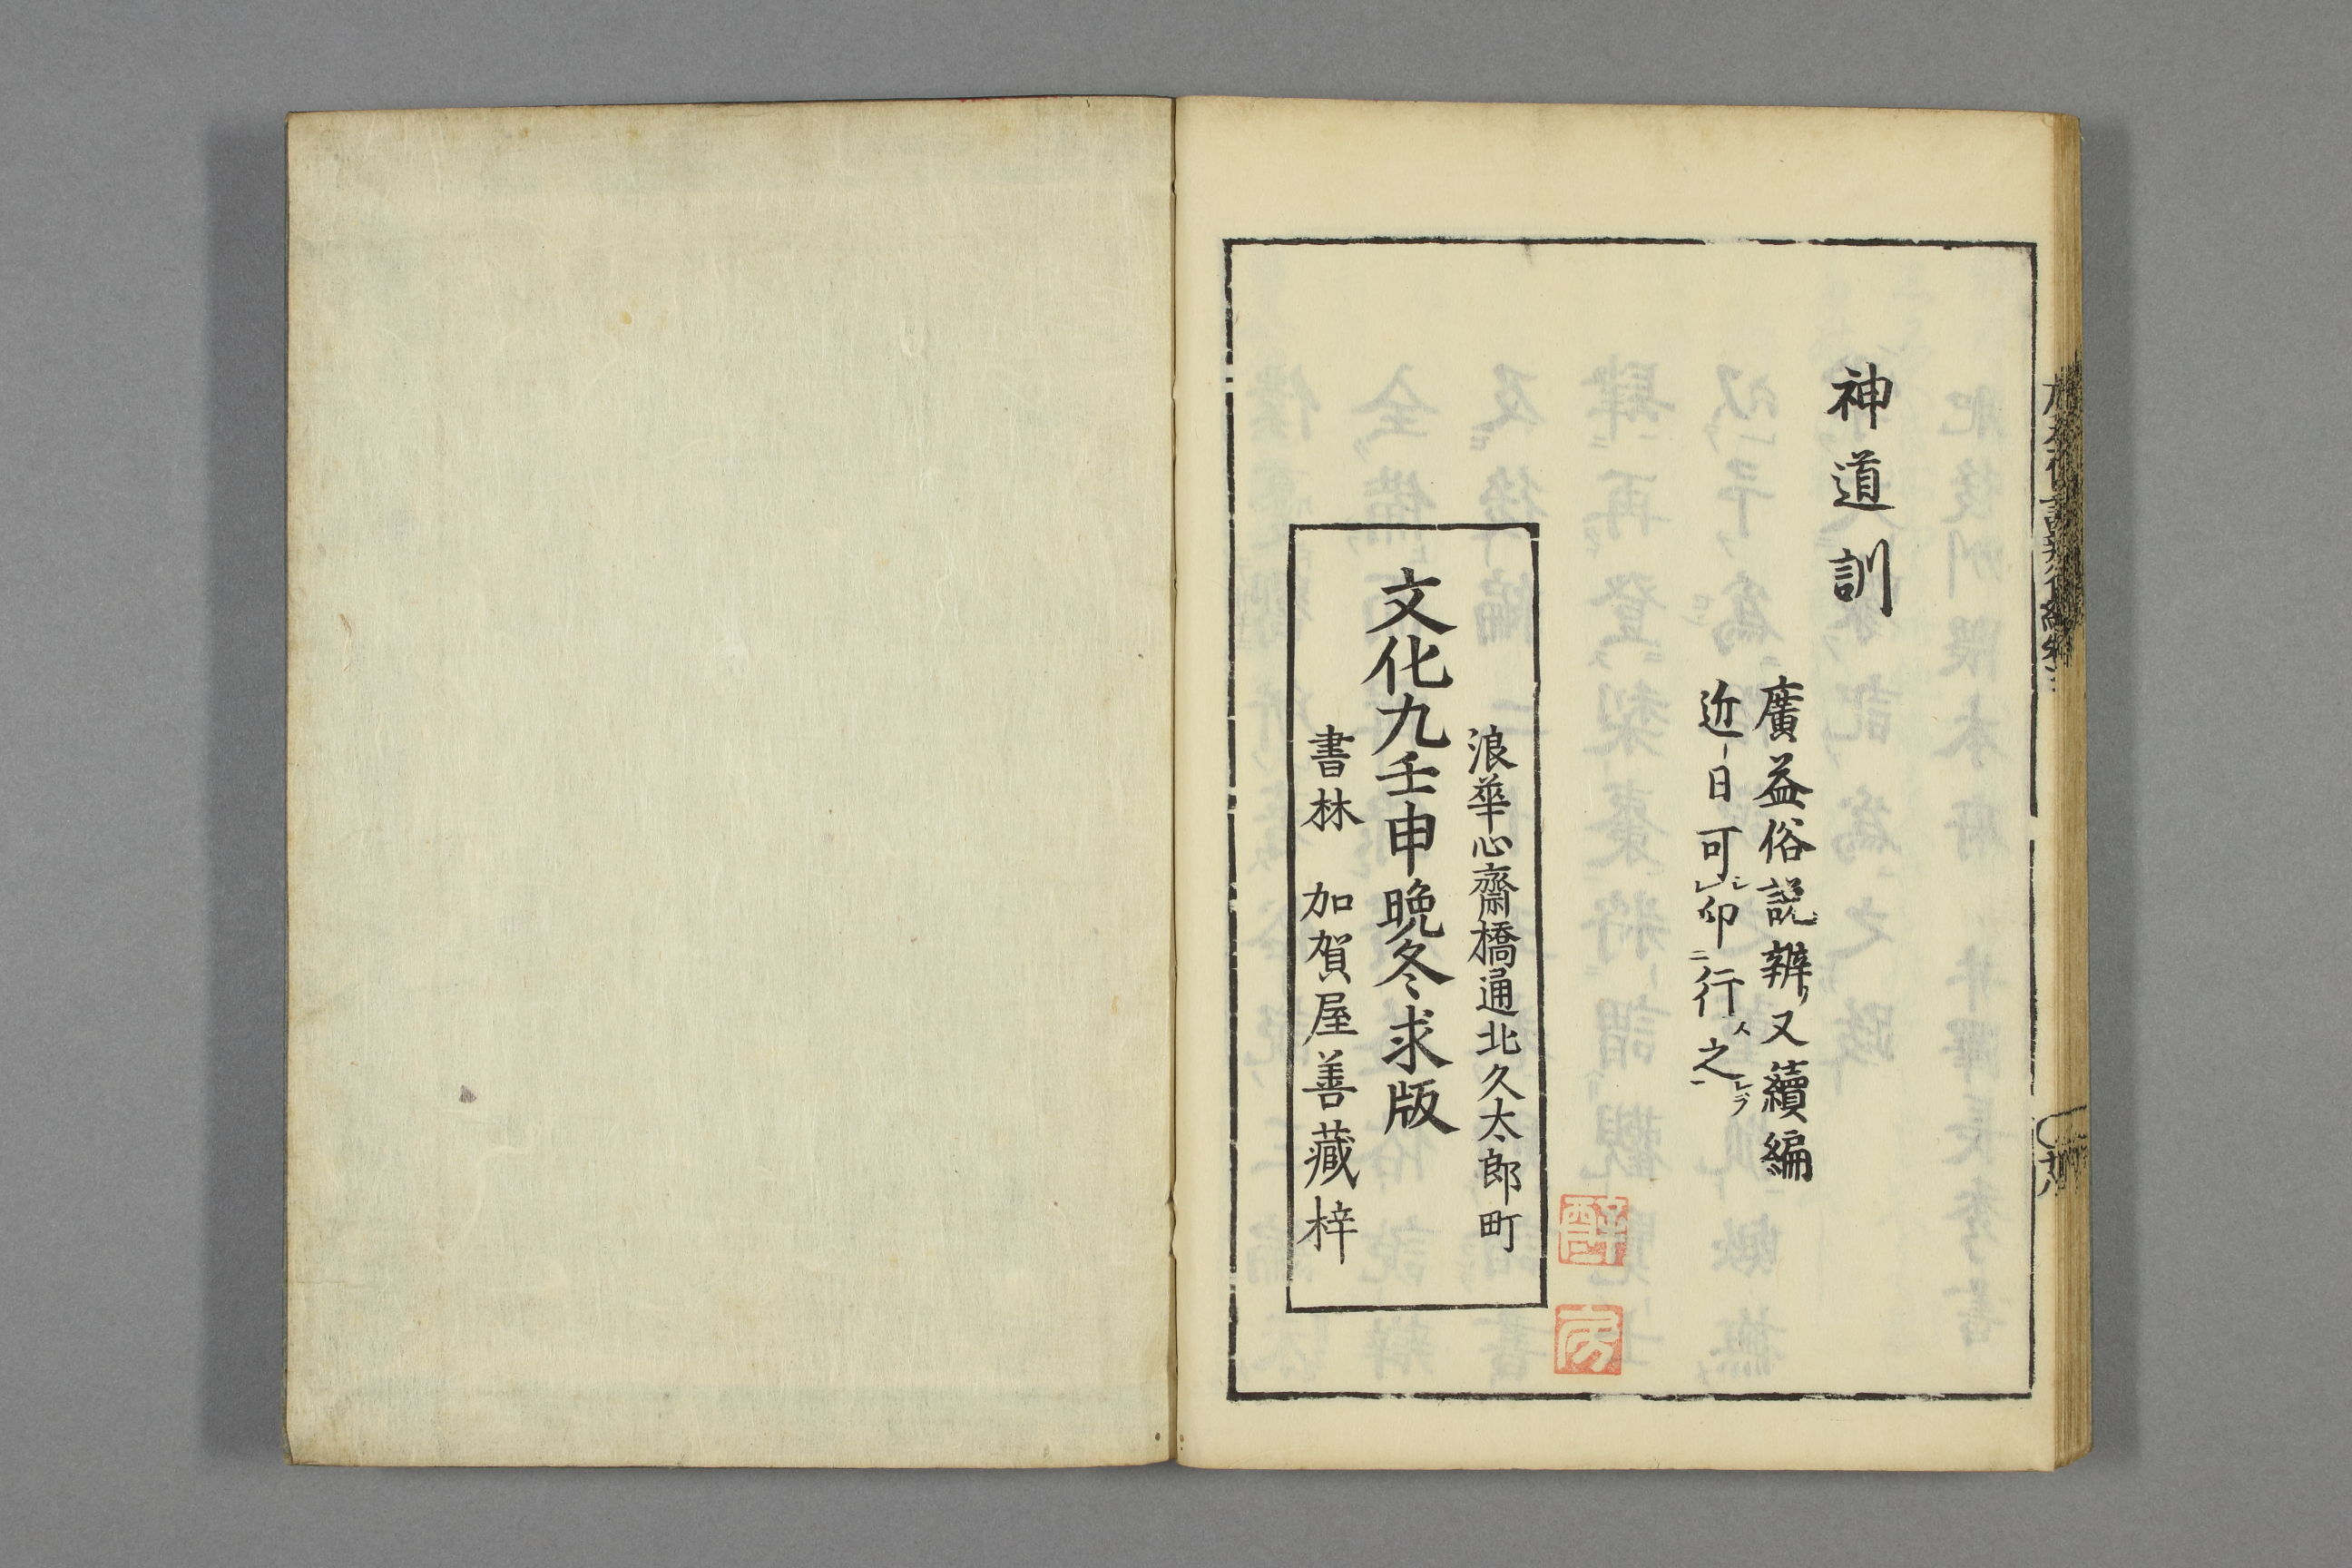 神道訓
廣益俗説辨又續編
近日可印行之
浪華心齋橋通北久太郎町
文化九壬申晩冬求版
書林 加賀屋善藏梓